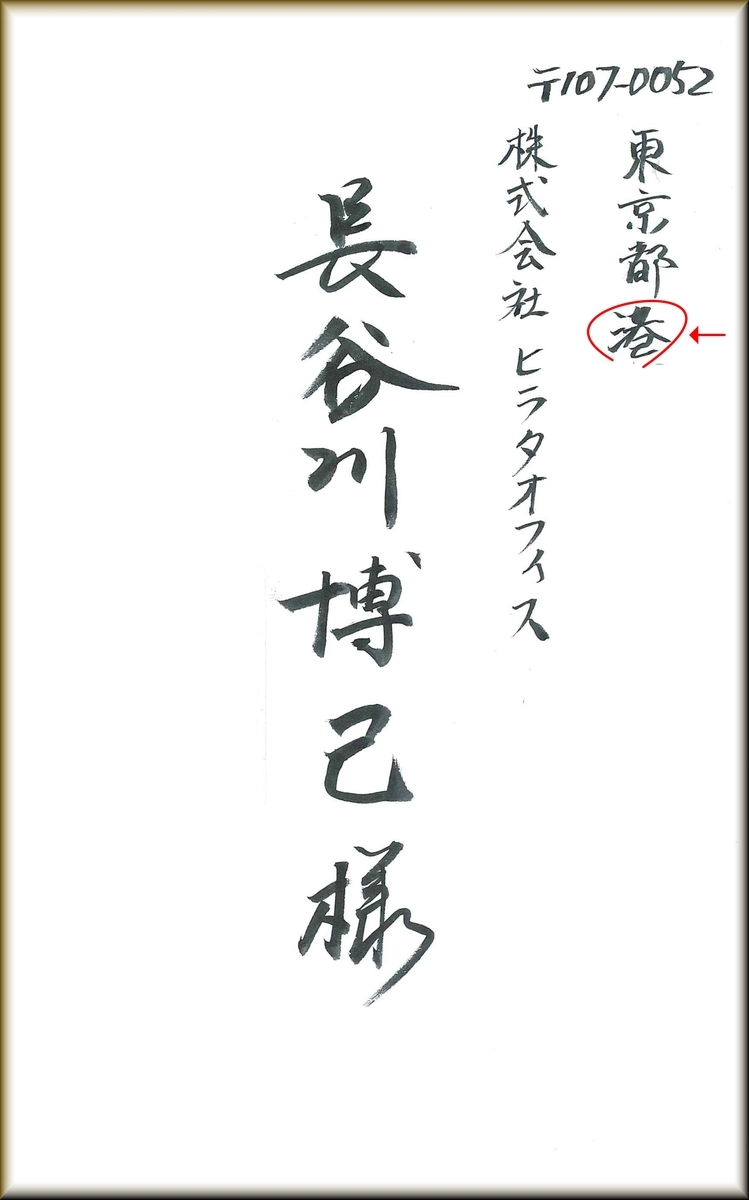 〒107-0052
東京都港
株式会社 ヒラタオフィス
長谷川博己様